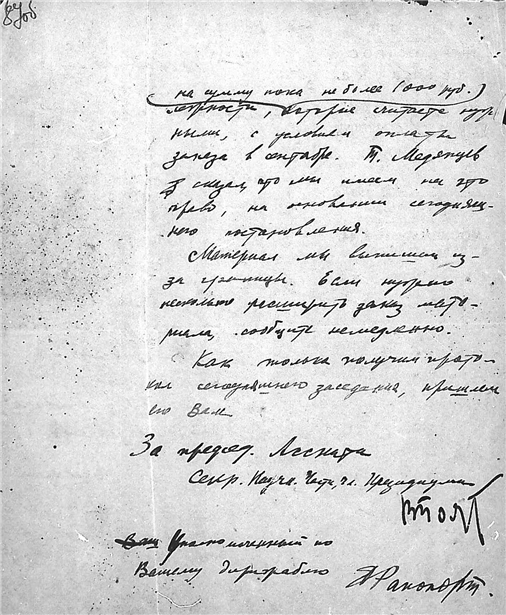 на сумму пока не более 1000 руб.)
которые считаете нуж-
ными, с условием оплаты
заказа в сентябре. Т. Медянцев
сказал, что мы имеем на это
право, на основании сегодняш-
него постановления.
Материал мы выпишем из-
за границы. Если нужно
несколько расширить заказ мате-
риала, сообщите немедленно.
Как только получим прото-
кол сегодняшнего заседания, пришлем
его Вам
За председ.
Секр. Научн. Части, чл. Президиума
Ваш Уполномоченный по
Вашему дирижаблю
Рапопорт.